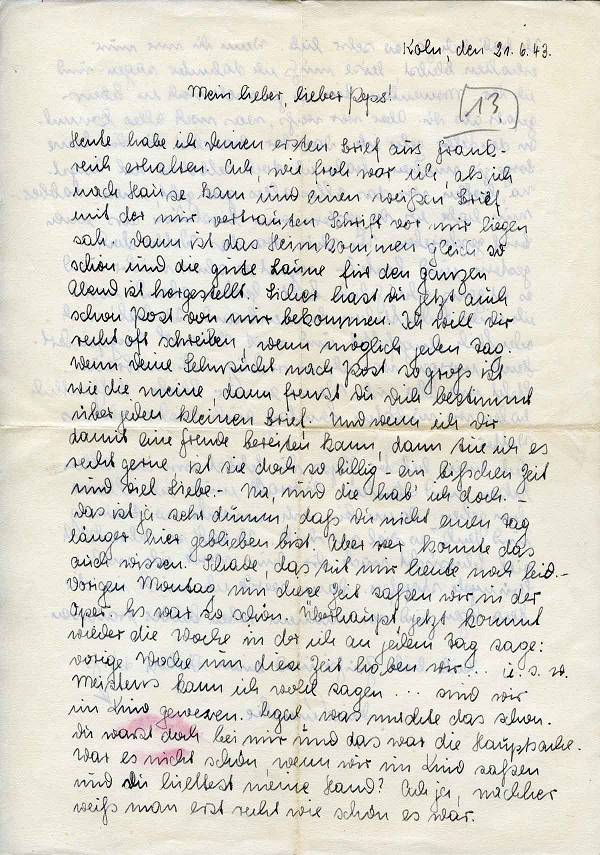 Köln, den 21.6.43.
Mein lieber, lieber Peps!
13
Heute habe ich Deinen ersten Brief aus Frank-
reich erhalten. Ach, wie froh war ich, als ich
nach Hause kam und einen weißen Brief
mit der mir vertrauten Schrift vor mir liegen
sah. Dann ist das Heimkommen gleich so
schön und die gute Laune für den ganzen
Abend ist hergestellt. Sicher hast Du jetzt auch
schon Post von mir bekommen. Ich will Dir
recht oft schreiben, wenn möglich jeden Tag.
Wenn Deine Sehnsucht nach Post so groß ist
wie die meine, dann freust Du Dich bestimmt
über jeden kleinen Brief. Und wenn ich Dir
damit eine Freude bereiten kann, dann tue ich es
recht gerne, ist sie doch so billig - ein bißchen Zeit
und viel Liebe.- Na, und die hab' ich doch.
Das ist ja sehr dumm, daß Du nicht einen Tag
länger hier geblieben bist. Aber wer konnte das
auch wissen. Schade, das tut mir heute noch leid.-
Vorigen Montag um diese Zeit saßen wir in der
Oper. Es war so schön. Überhaupt jetzt kommt
wieder die Woche in der ich an jedem Tag sage:
vorige Woche um diese Zeit haben wir... u. s. w.
Meistens kann ich wohl sagen... sind wir
im Kino gewesen. Egal was machte das schon.
Du warst doch bei mir und das war die Hauptsache.
War es nicht schön, wenn wir im Kino saßen
und Du hieltest meine Hand? Ach ja, nachher
weiß man erst recht wie schön es war.